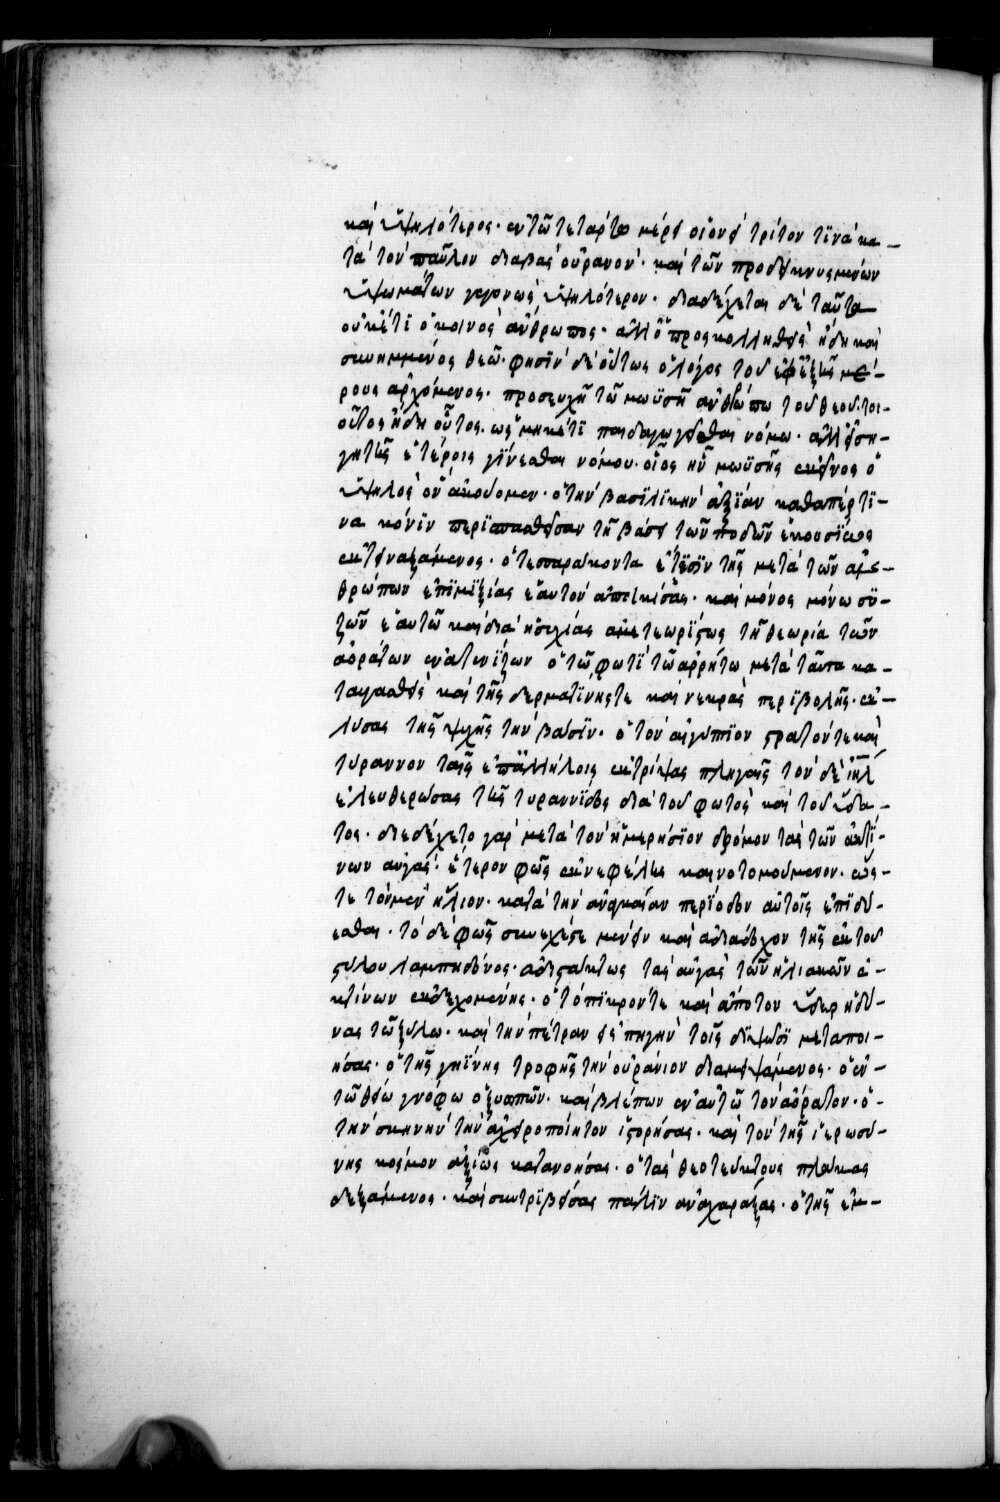 καὶ ὑψηλότερος· ἐν τῷ τετάρτῳ μέρει οἱονεὶ τρίτον τϊνὰ κα–
τὰ τὸν παῦλον διαβὰς οὐρανόν· καὶ τῶν προδϊηνυσμένων
ὑψωμάτων γεγονὼς ὑψηλότερον· διαδέχεται δὲ ταῦτα
οὐκέτϊ ὁ κοινὸς ἄνθρωπος· ἀλλ' ὁ προσκολληθεὶς ἤδη καὶ
συνημμένος θεῷ· φησῒν δὲ οὕτως ὁ λόγος τοῦ ἐφεξῆς μέ–
ρους ἀρχόμενος· προσευχὴ τῷ μωϋσῆ ἀνθρώπω τοῦ θεοῦ· τοι–
οῦτος ἤδη οὗτος· ὡς μηκέτϊ παιδαγωγεῖσθαι νόμω· ἀλλ' εἰση–
γητὴς ἑτέροις γΐνεσθαι νόμου· οἷος ἦν μωϋσῆς ἐκεῖνος ὁ
ὑψηλὸς ὃν ἀκούομεν· ὁ τὴν βασϊλϊκὴν ἀξΐαν καθαπέρ τϊ–
να κόνϊν περϊσπασθεῖσαν τῆ βάσει τῶν ποδῶν ἑκουσϊως
ἐκτϊναξάμενος· ὁ τεσσαράκοντα ἔτεσϊν τῆς μετὰ τῶν ἀν–
θρώπων ἐπϊμϊξίας ἑαυτὸν ἀποικίσας· καὶ μόνος μόνω συ–
ζῶν ἑαυτῷ καὶ δι' ἡσυχίας ἀμετεωρίστως τῆ θεωρία τῶν
ἀοράτων ἐνατενΐζων ὁ τῷ φωτϊ τῷ ἀρρήτω μετὰ ταῦτα κα–
ταυγασθεὶς καὶ τῆς δερματΐνης τε καὶ νεκρᾶς περϊβολῆς· ἐκ–
λύσας τῆς ψυχῆς τὴν βάσϊν· ὁ τὸν αἰγύπτϊον στρατόν τε καὶ
τύραννον ταῖς ἐπαλλήλοις ἐκτρίψας πληγαῖς τὸν δὲ ἰηλ
ἐλευθερώσας τῆς τυραννΐδος διὰ τοῦ φωτὸς καὶ τοῦ ὕδα–
τος· διεδέχετο γὰρ μετὰ τὸν ἡμερήσϊον δρόμον τὰς τῶν ἀκτΐ–
νων αὐγάς· ἕτερον φῶς ἐκ νεφέλης καινοτομούμενον· ὡς–
τε τὸν μὲν ἥλιον· κατὰ τὴν ἀναγκαίαν περΐοδον αὐτοῖς ἐπϊδύ–
εσθαι· τὸ δὲ φῶς συνεχές τε μένειν καὶ ἀδιάδοχον τῆς ἐκ τοῦ
στύλου λαμπηδόνος· ἀδϊστάκτως τὰς αὐγὰς τῶν ἡλιακῶν ἀ–
κτΐνων ἐκδεχομένης· ὁ τὸ πϊκρόν τε καὶ ἄποτον ὕδωρ ἡδύ–
νας τῷ ξύλω· καὶ τὴν πέτραν εἰς πηγὴν τοῖς δϊψῶσϊ μεταποι–
ήσας· ὁ τῆς γηΐνης τροφῆς τὴν οὐράνιον διαμειψάμενος· ὁ ἐν
τῷ θείω γνόφω ὀξυωπῶν· καὶ βλέπων ἐν αὐτῷ τὸν ἀόρατον· ὁ
τὴν σκηνὴν τὴν ἀχειροποίητον ἱστορήσας· καὶ τὸν τῆς ἱερωσύ–
νης κόσμον ἀξίως κατανοήσας· ὁ τὰς θεοτεύκτους πλάκας
δεξάμενος· καὶ συντρϊβείσας πάλϊν ἀναχαράξας· ὁ τῆς ἐμ–